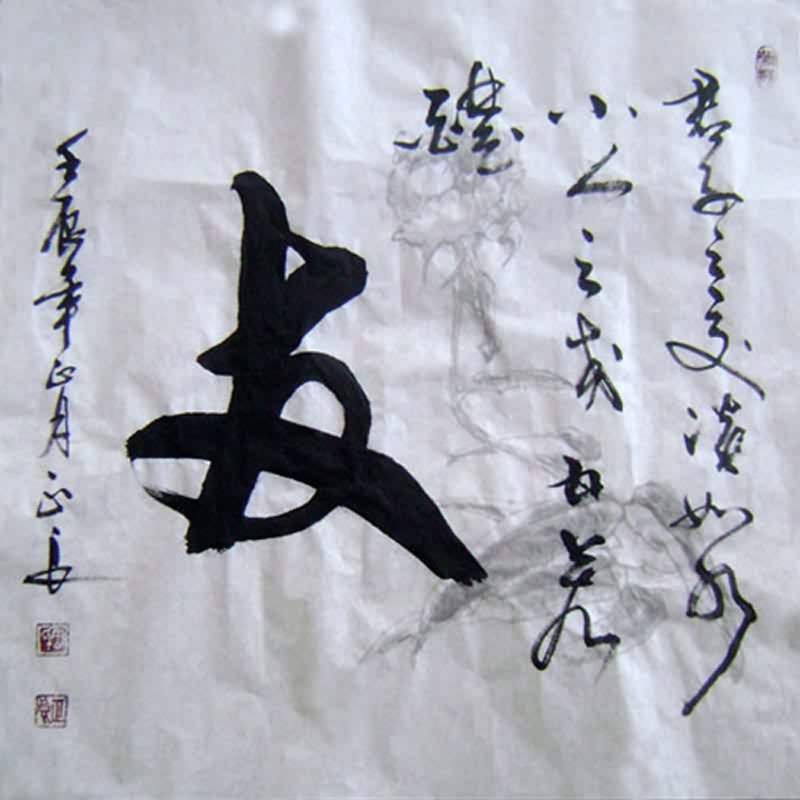 君子之交淡如水
小人之交甘若
醴
友
壬辰年正月